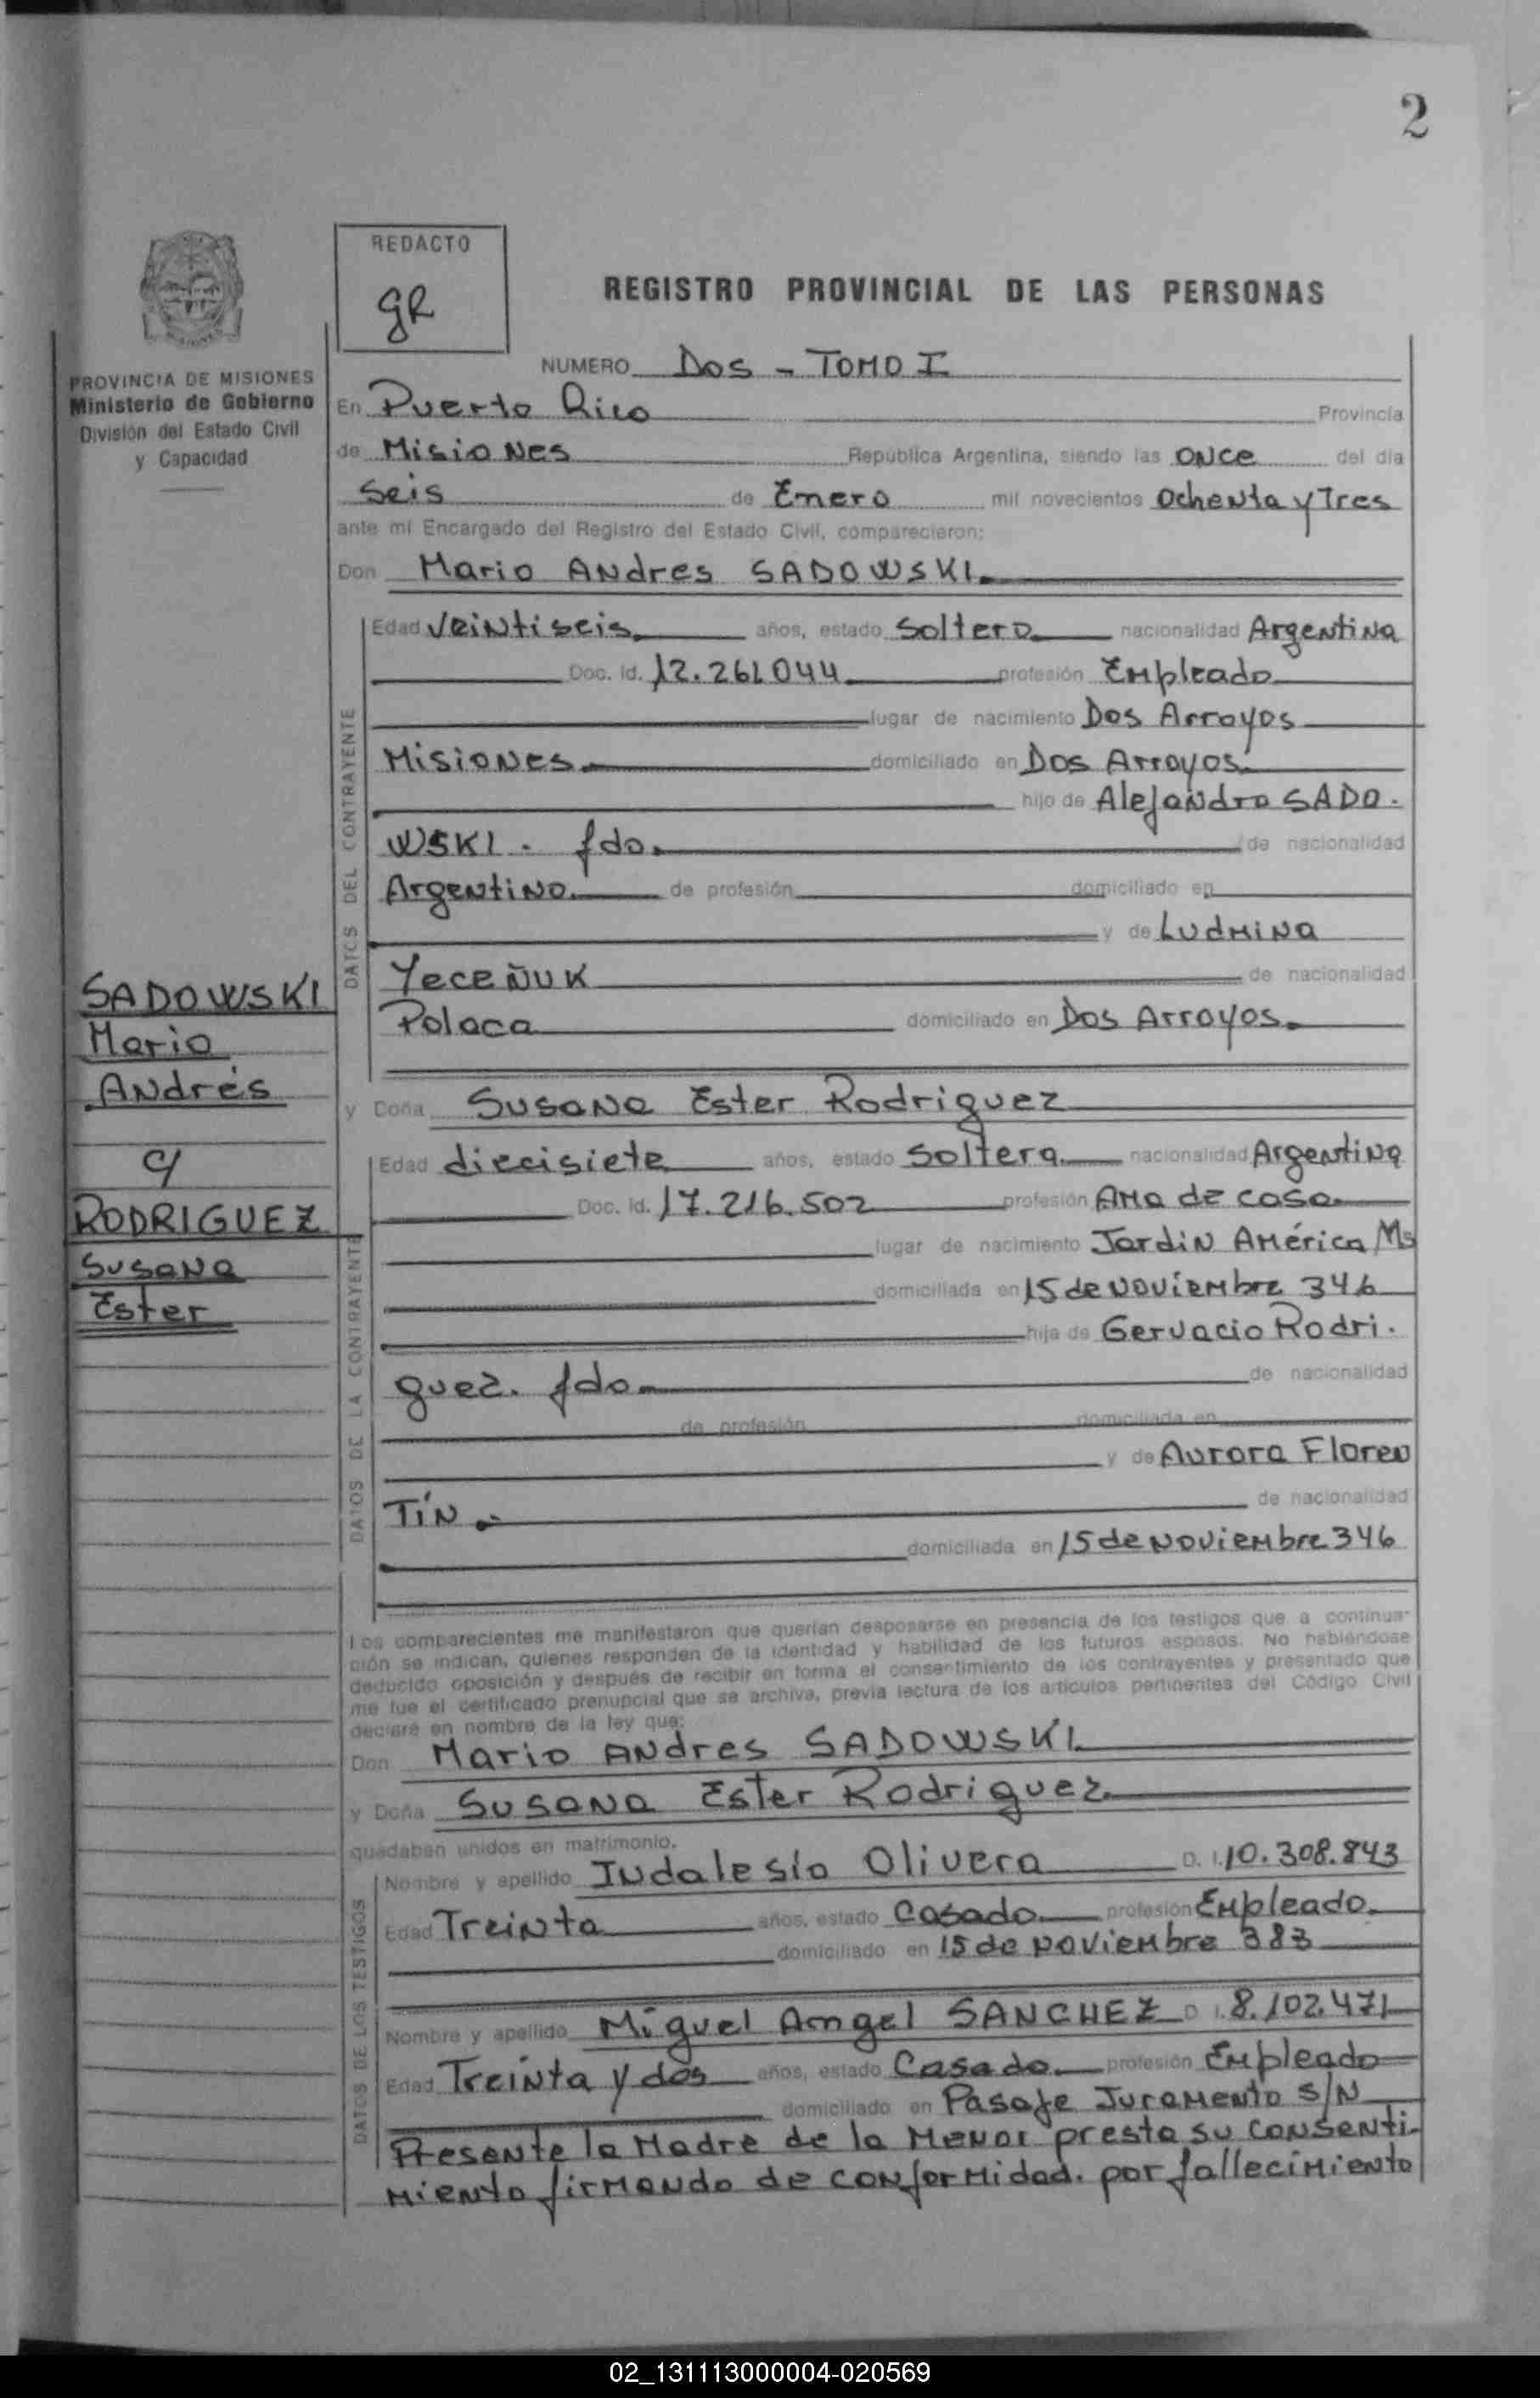 2
REDACTO
gR
REGISTRO PROVINCIAL DE LAS PERSONAS
PROVINCIA DE MISIONES
Ministerio de Gobierno
División del Estado Civil
y Capacidad
NUMERO Dos - TOMO I
En Puerto Rico Provincia
de Misiones República Argentina, siendo las once del día
seis de Enero mil novecientos ochenta y Tres
ante mí Encargado del Registro del Estado Civil, comparecieron:
Don Mario Andres SADOWSKI.
DATOS DEL CONTRAYENTE
Edad veintiseis años, estado soltero nacionalidad Argentina
Doc. Id. 12.261.044 profesión Empleado
lugar de nacimiento Dos Arroyos
Misiones domiciliado en Dos Arroyos
hijo de Alejandro SADO-
WSKI. fdo. de nacionalidad
Argentino. de profesión domiciliado en
y de Ludmina
Yeceñuk de nacionalidad
Polaca domiciliado en Dos Arroyos.
SADOWSKI
Mario
Andrés
c/
RODRIGUEZ
Susana
Ester
y Doña Susana Ester Rodriguez
DATOS DE LA CONTRAYENTE
Edad diecisiete años, estado soltera nacionalidad Argentina
Doc. Id. 17.216.502 profesión Ama de casa
lugar de nacimiento Jardin América Ms
domiciliada en 15 de noviembre 346
hija de Gervacio Rodri-
guez. fdo. de nacionalidad
de profesión domiciliada en
y de Aurora Floren
Tín. de nacionalidad
domiciliada en 15 de noviembre 346
Los comparecientes me manifestaron que querían desposarse en presencia de los testigos que a continua-
ción se indican, quienes responden de la identidad y habilidad de los futuros esposos. No habiéndose
deducido oposición y después de recibir en forma el consentimiento de los contrayentes y presentado que
me fue el certificado prenupcial que se archiva, previa lectura de los artículos pertinentes del Código Civil
declaré en nombre de la ley que:
Don Mario Andres SADOWSKI
y Doña Susana Ester Rodriguez.
quedaban unidos en matrimonio.
DATOS DE LOS TESTIGOS
Nombre y apellido Indalesio Olivera D. I. 10.308.843
Edad Treinta años, estado Casado profesión Empleado
domiciliado en 15 de noviembre 383
Nombre y apellido Miguel Amgel SANCHEZ D. I. 8.102.471
Edad Treinta y dos años, estado Casado profesión Empleado
domiciliado en Pasaje Juramento S/N
Presente la Madre de la Menor presta su consenti-
miento firmando de conformidad. por fallecimiento
02_131113000004-020569